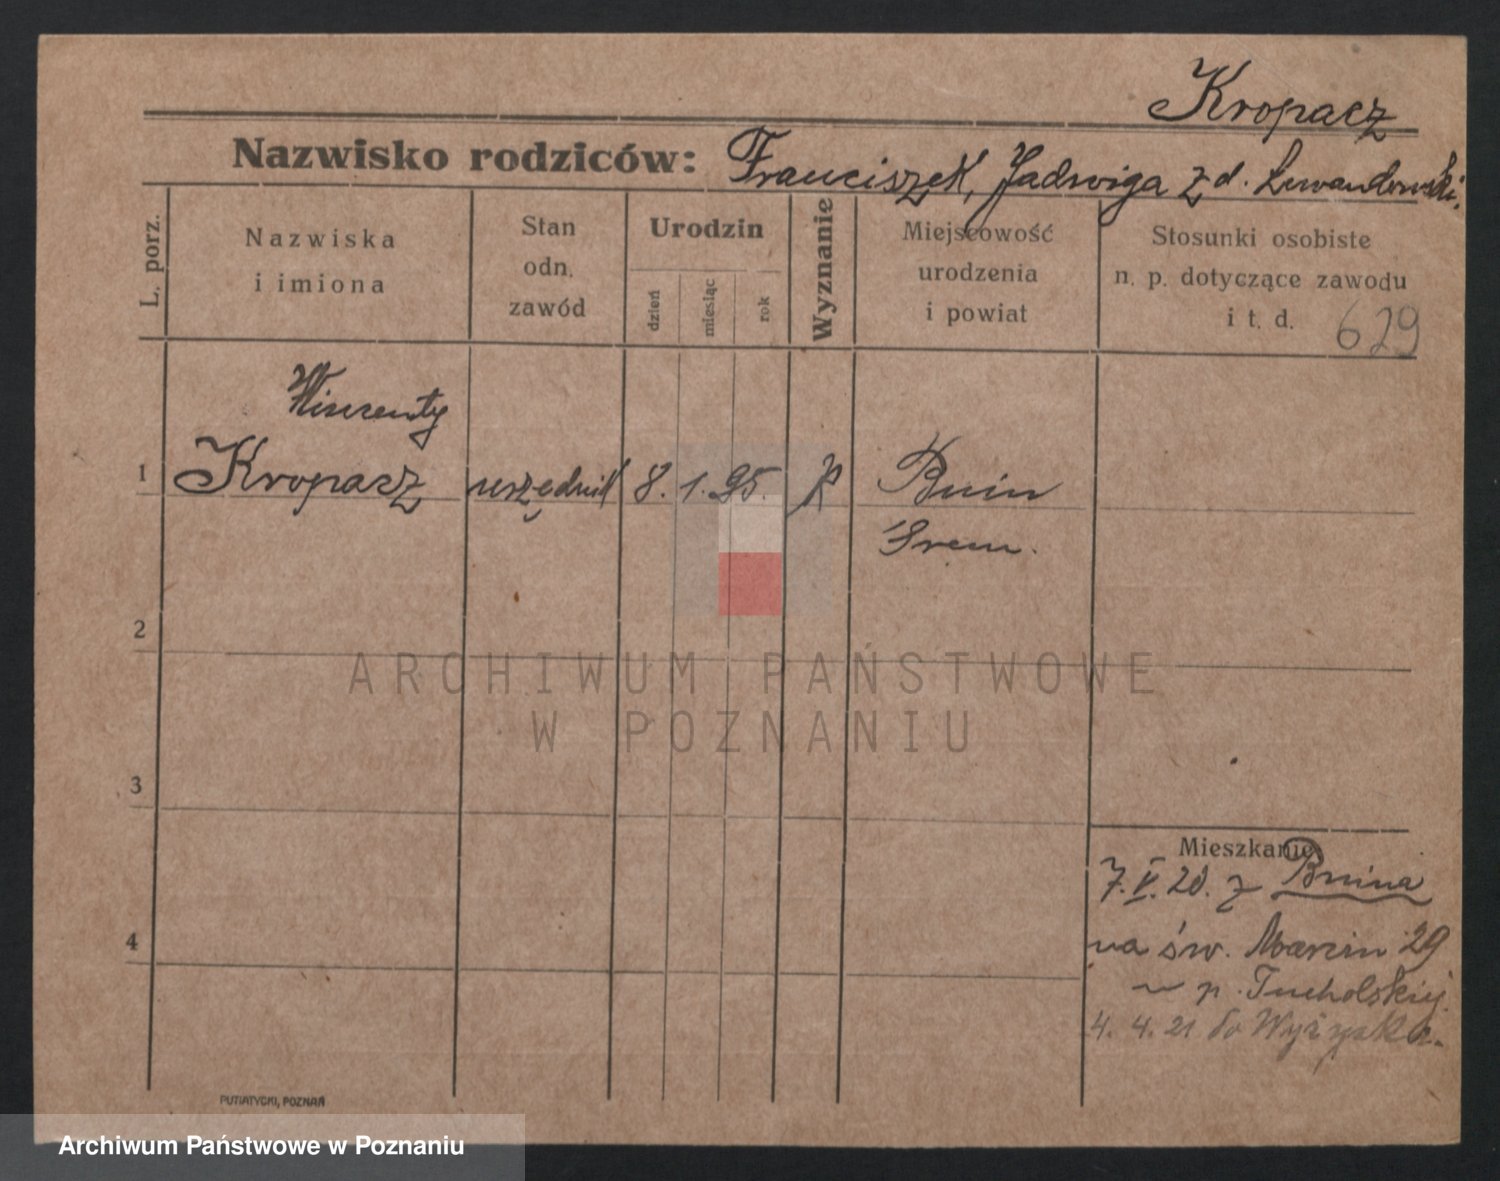 Kropacz
Nazwisko rodziców: Franciszek, Jadwiga z d. Lewandowski.
L. porz.
Nazwiska i imiona
Stan odn. zawód
Urodzin
dzień
miesiąc
rok
Wyznanie
Miejscowość urodzenia i powiat
Stosunki osobiste n. p. dotyczące zawodu i t. d.
629
Wincenty
1 Kropacz urzędnik 8. 1. 95. K Bnin
Srem.
2
3
4
Mieszkanie
7. V. 20. z Bnina
na św. Marcin 29
p. Tucholskiej
4. 4. 21 do Wyrzyska.
PUTIATYCKI, POZNAŃ
ARCHIWUM PAŃSTWOWE
W POZNANIU
Archiwum Państwowe w Poznaniu